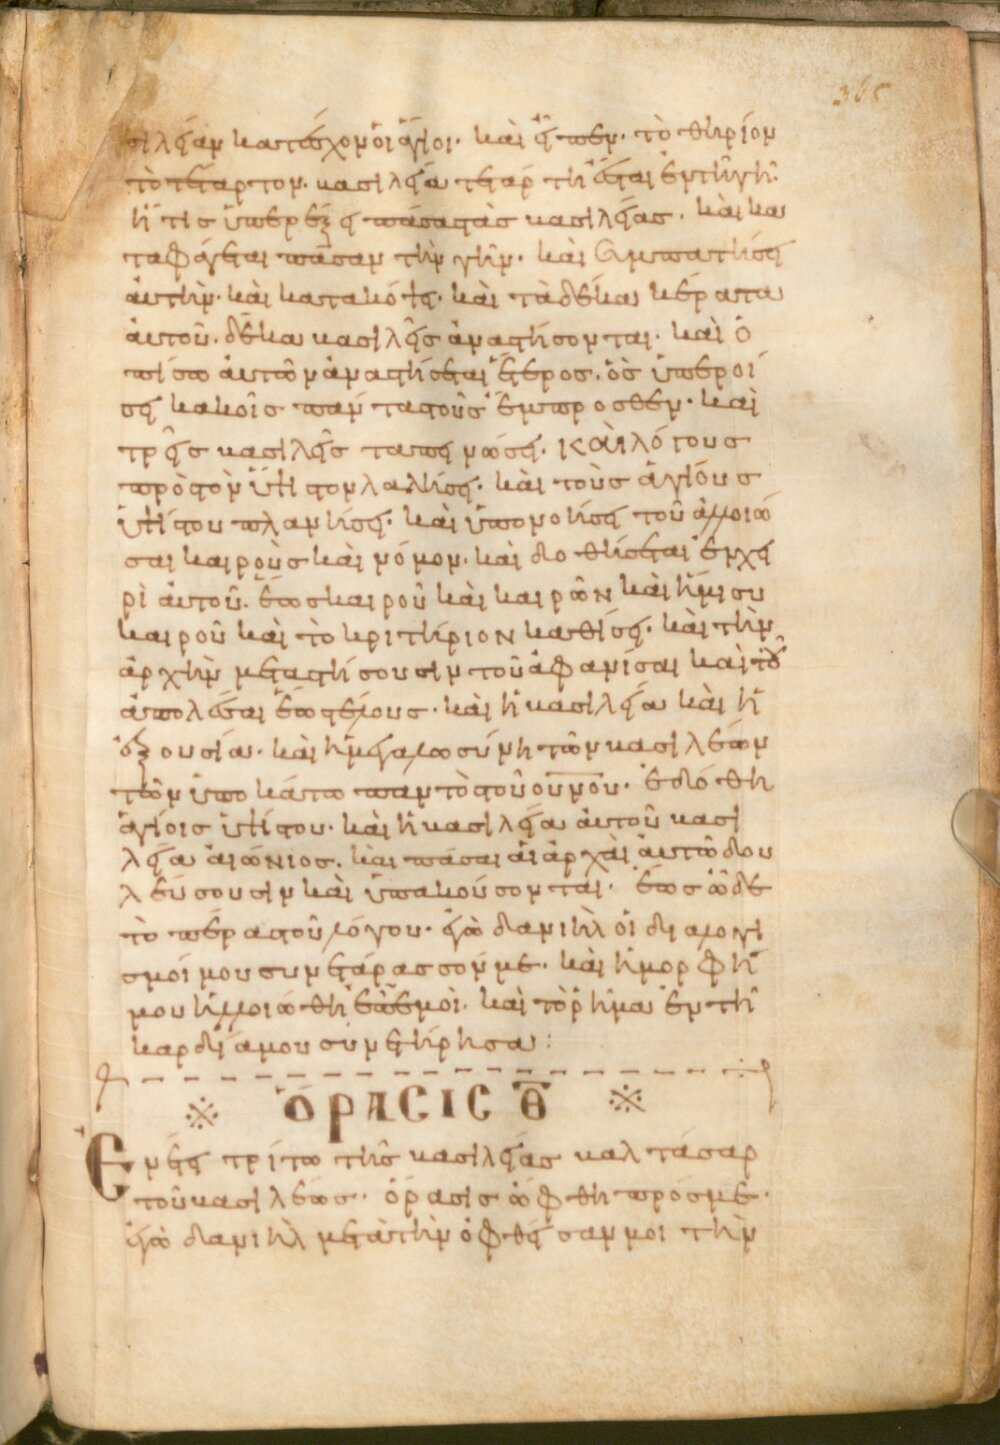 365
σιλείαν κατέσχον οἱ ἅγιοι· καὶ εἶπεν· τὸ θηρίον
τὸ τέταρτον· βασιλεία τετάρτη ἔσται ἐν τῆ γῆ·
ἥτις ὑπερέξει πάσας τὰς βασιλείας· καὶ κα
ταφάγεται πᾶσαν τὴν γῆν· καὶ ἐμπατήσει
ἀυτὴν· καὶ κατακόψει· καὶ τὰ δέκα κέρατα
ἀυτοῦ· δέκα βασιλεῖς ἀναστήσονται· καὶ ὁ
πίσω ἀυτῶν ἀναστήσεται ἕτερος· ὃς ὑπεροί
σει κακοῖς πάντας τοὺς ἔμπροσθεν· καὶ
τρεῖς βασιλεῖς ταπεινώσει· καὶ λόγους
πρὸς τὸν ὕψιστον λαλήσει· καὶ τοὺς ἁγίους
ὑψίστου πλανήσει· καὶ ὑπονοήσει τοῦ ἀλλοιῶ
σαι καιροὺς καὶ νόμον· καὶ δοθήσεται ἐν χει
ρὶ ἀυτοῦ· ἕως καιροῦ καὶ καιρῶν καὶ ἥμισυ
καιροῦ καὶ τὸ κριτήριον καθίσει· καὶ τὴν
ἀρχὴν μεταστήσουσιν τοῦ ἀφανίσαι καὶ τοῦ
ἀπολέσαι ἕως τέλους· καὶ ἡ βασιλεία καὶ ἡ
ἐξουσία· καὶ ἡ μεγαλωσύνη τῶν βασιλέων
τῶν ὑποκάτω παντὸς τοῦ ουνου· ἐδόθη
ἁγίοις ὑψίστου· καὶ ἡ βασιλεία ἀυτοῦ βασι
λεία ἀιώνιος· καὶ πᾶσαι ἁι ἀρχαὶ ἀυτῶ δου
λεύσουσιν καὶ ὑπακούσονται· ἕως ὧδε
τὸ πέρας τοῦ λόγου· ἐγὼ δανιὴλ ὁι διαλογι
σμοί μου συνετάρασσόν με· καὶ ἡ μορφή
μου ἠλλοιώθη ἐπ ἐμοὶ· καὶ τὸ ῥῆμα ἐν τῆ
καρδία μου συνετήρησα:
ὍΡΑCΙC Θ
Ἐν ἔτει τρίτω τῆς βασιλείας βαλτάσαρ
τοῦ βασιλέως· ὅρασις ὤφθη πρός με·
ἐγὼ δανιὴλ μετὰ τὴν ὀφθεῖσάν μοι τὴν